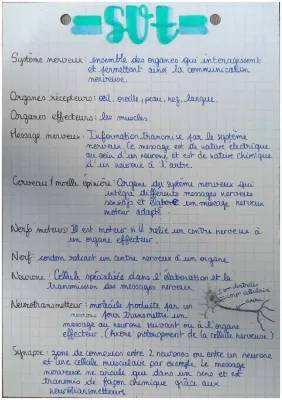 SVT
Système nerveux : ensemble des organes qui interagissent
et permettent ainsi la communication
nerveuse.
Organes récepteurs : œil, oreille, peau, nez, langue.
Organes effecteurs : les muscles.
Message nerveux : Information transmise par le système
nerveux. Ce message est de nature électrique
au sein d'un neurone et est de nature chimique
d'un neurone à l'autre.
Cerveau / moelle épinière : Organe du système nerveux qui
intègre différents messages nerveux
sensitifs et élabore un message nerveux
moteur adapté.
Nerfs moteurs : Il est moteur si il relie un centre nerveux à
un organe effecteur.
Nerf : cordon reliant un centre nerveux à un organe
Neurone : Cellule spécialisée dans l'élaboration et la
transmission des messages nerveux.
Neurotransmetteur : molécule produite par un
neurone pour transmettre un
message au neurone suivant ou à l'organe
effecteur. (Axone : prolongement de la cellule nerveuse)
Synapse : zone de connexion entre 2 neurones ou entre un neurone
et une cellule musculaire par exemple. Le message
nerveux ne circule que dans un sens et est
transmis de façon chimique grâce aux
neurotransmetteurs